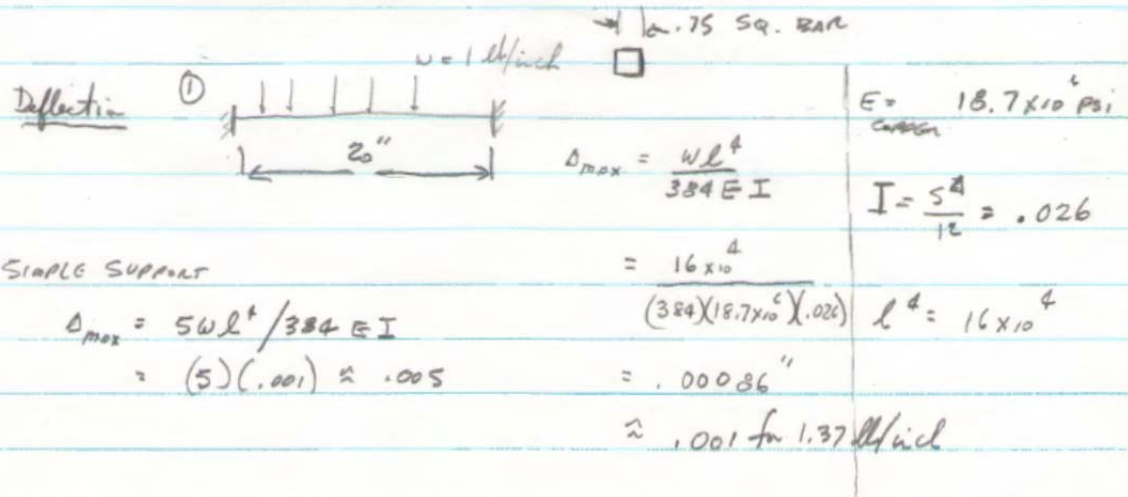 .75 SQ. BAR
w = 1 lb/inch
Deflection ①
20"
Δmax = wl⁴ / 384 E I
= 16 x 10⁴ / (384)(18.7x10⁶)(.026)
= .00086"
≈ .001 for 1.37 lb/inch
SIMPLE SUPPORT
Δmax = 5wl⁴/384 E I
= (5)(.001) ≈ .005
E = 18.7 x 10⁶ psi
COPPER
I = S⁴/12 = .026
l⁴ = 16 x 10⁴